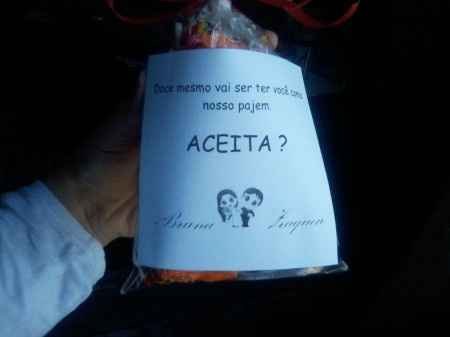 Doce mesmo vai ser ter você como
nosso pajem
ACEITA ?
Bruna